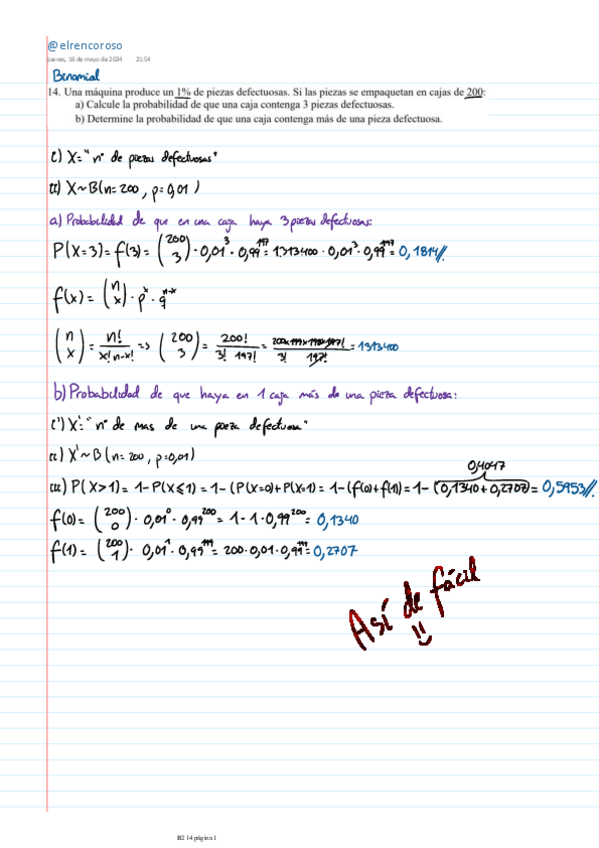 @elrencoroso
jueves, 16 de mayo de 2024 21:54
Binomial
14. Una máquina produce un 1% de piezas defectuosas. Si las piezas se empaquetan en cajas de 200:
a) Calcule la probabilidad de que una caja contenga 3 piezas defectuosas.
b) Determine la probabilidad de que una caja contenga más de una pieza defectuosa.
i) X="nº de piezas defectuosas"
ii) X~B(n=200, p=0,01)
a) Probabilidad de que en una caja haya 3 piezas defectuosas:
P(X=3)=f(3)=(200 3)·0,01³·0,99¹⁹⁷=1313400·0,01³·0,99¹⁹⁷=0,1814//.
f(x)=(n x)·pˣ·qⁿ⁻ˣ
(n x)=n!/x!n-x! => (200 3)=200!/3! 197!=200x199x198x197!/3! 197!=1313400
b) Probabilidad de que haya en 1 caja más de una pieza defectuosa:
i') X'="nº de mas de una pieza defectuosa"
ii) X'~B(n=200, p=0,01)
0,4047
iii) P(X>1)=1-P(X≤1)=1-(P(X=0)+P(X=1)=1-(f(0)+f(1))=1-(0,1340+0,2707)=0,5953//.
f(0)=(200 0)·0,01⁰·0,99²⁰⁰=1·1·0,99²⁰⁰=0,1340
f(1)=(200 1)·0,01¹·0,99¹⁹⁹=200·0,01·0,99¹⁹⁹=0,2707
Así de fácil
B2 14 página 1